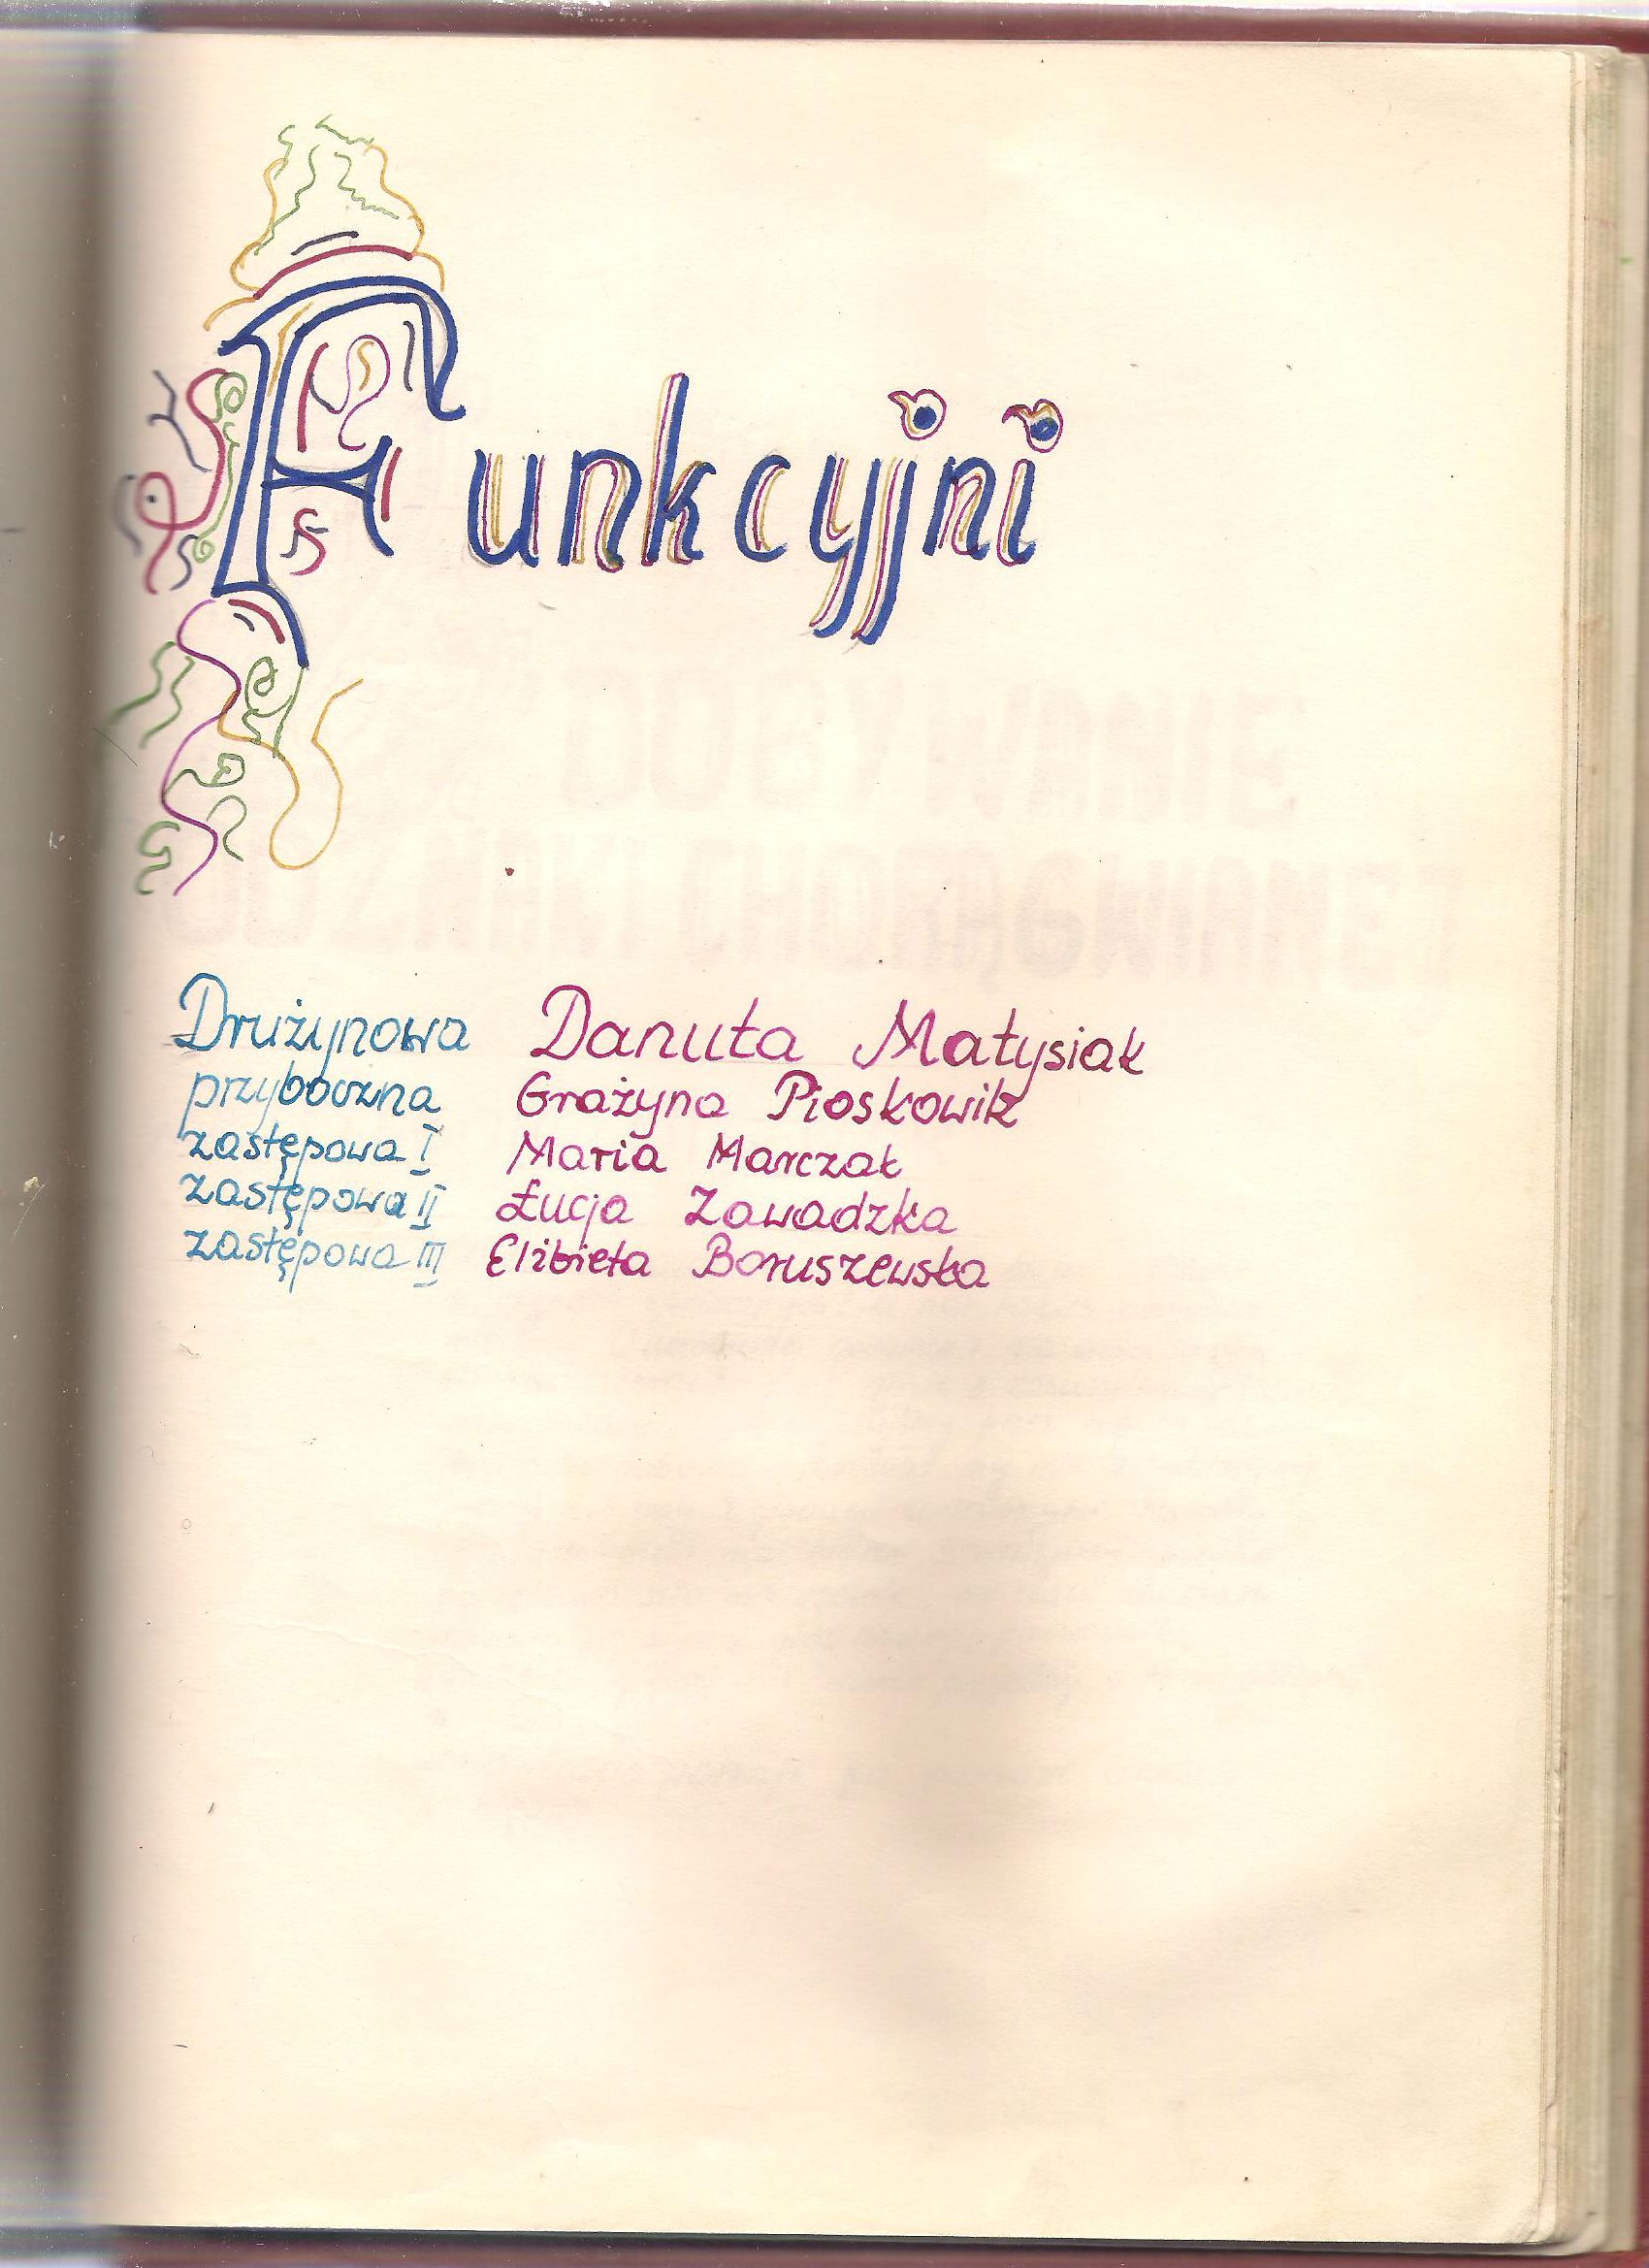 Funkcyjni
Drużynowa Danuta Matysiak
przyboczna Grażyna Pioskowik
zastępowa I Maria Marczak
zastępowa II Łucja Zawadzka
zastępowa III Elżbieta Boruszewska